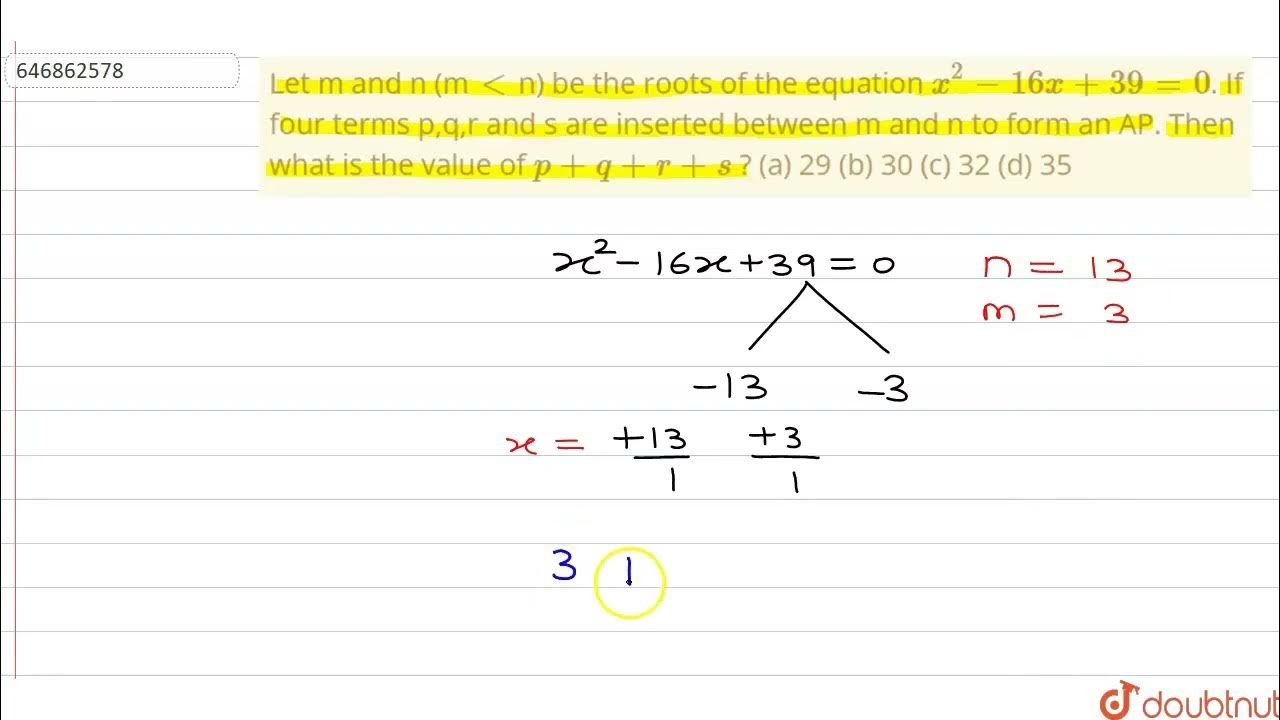 646862578
Let m and n (m < n) be the roots of the equation x² − 16x + 39 = 0. If
four terms p,q,r and s are inserted between m and n to form an AP. Then
what is the value of p + q + r + s ? (a) 29 (b) 30 (c) 32 (d) 35
x² − 16x + 39 = 0
n = 13
m = 3
−13 −3
x = +13/1 +3/1
3 1
doubtnut